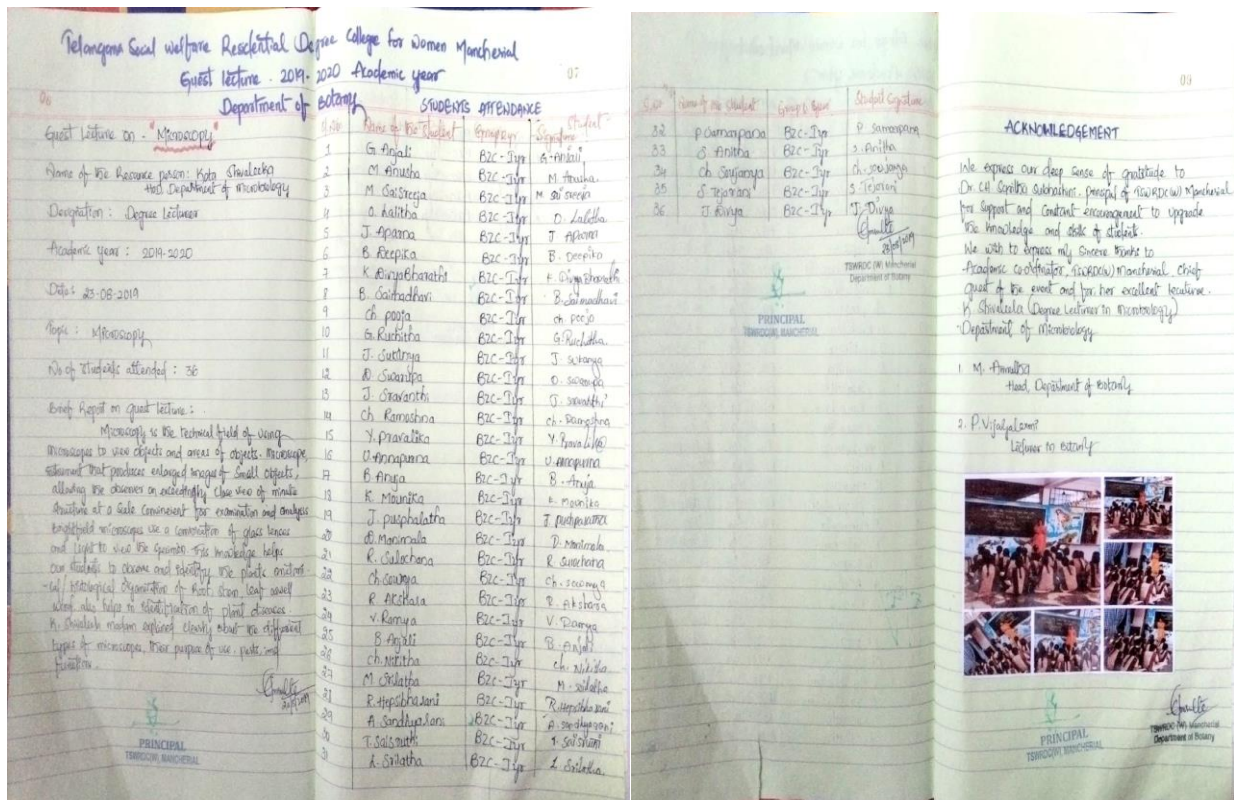 Telangana Socal welfare Residential Degree College for Women Mancherial
Guest lecture . 2019-2020 Academic year
Department of Botany
06
Guest Lecture on - "Microscopy"
Name of the Resource person: Kota Shivaleela
Head Department of microbiology
Designation : Degree Lecturer
Academic year : 2019-2020
Date : 23-08-2019
Topic : Microscopy
No of students attended : 36
Brief Report on guest lecture :
Microscopy is the technical field of using
microscopes to view objects and areas of objects. Microscope,
that produces enlarged images of small objects,
allowing the observer an exceedingly close view of minute
structure at a scale convinenent for examination and analysis
Brightfield microscopes use a combination of glass lences
and light to view the specimen this knowledge helps
our students to observe and identify the plants
histological organization of Root, stem, leaf
also helps in identification of plant diseases
K. Shivaleela madam explained clearly about the different
types of microscopes, their purpose of use, parts and
function.
PRINCIPAL
TSWRDC(W), MANCHERIAL
07
STUDENTS ATTENDANCE
S.No Name of the student Group&yr Student Signature
1 G. Anjali BZC-Iyr G. Anjali
2 M. Anusha BZC-Iyr M Anusha
3 M. Saisreeja BZC-Iyr M. Sai sreeja
4 O. Lalitha BZC-Iyr O. Lalitha
5 J. Aparna BZC-Iyr J Aparna
6 B. Deepika BZC-Iyr B. Deepika
7 K. DivyaBharathi BZC-Iyr K. DivyaBharathi
8 B. Saimadhavi BZC-Iyr B. Saimadhavi
9 Ch pooja BZC-Iyr ch pooja
10 G. Ruchitha BZC-Iyr G. Ruchitha
11 J. Sukanya BZC-Iyr J. sukanya
12 D. Swarupa BZC-Iyr D. swarupa
13 J. Sravanthi BZC-Iyr J. sravanthi
14 Ch BZC-Iyr ch.
15 Y. pravalika BZC-Iyr Y. Pravalika
16 U. Annapurna BZC-Iyr U. Annapurna
17 B. Anuja BZC-Iyr B. Anuja
18 K. Mounika BZC-Iyr K. Mounika
19 J. pusphalatha BZC-Iyr J
20 D. Manimala BZC-Iyr D. Manimala
21 R. Sulochana BZC-Iyr R. sulochana
22 Ch. Sowmya BZC-Iyr ch. sowmya
23 R Akshara BZC-Iyr R. Akshara
24 V. Ramya BZC-Iyr V. Ramya
25 B Anjali BZC-Iyr B. Anjali
26 Ch. Nikitha BZC-Iyr ch. Nikitha
27 M Srilatha BZC-Iyr M. srilatha
28 R. Hepsibharani BZC-Iyr R. Hepsibharani
29 A. Sandhyarani BZC-Iyr A. sandhyarani
30 T. BZC-Iyr T.
31 L. Srilatha BZC-Iyr L Srilatha
S.No Name of the student Group & Year Student Signature
32 BZC-Iyr
33 S. Anitha BZC-Iyr S. Anitha
34 Ch Soujanya BZC-Iyr ch. soujanya
35 S. Tejarani BZC-Iyr S. Tejarani
36 J. Divya BZC-Iyr J. Divya
TSWRDC (W) Mancherial
Department of Botany
PRINCIPAL
TSWRDC(W), MANCHERIAL
ACKNOWLEDGEMENT
We express our deep sense of gratitude to
Dr. CH principal of TSWRDC(W) Mancherial
for support and constant encouragement to upgrade
the knowledge and skills of students.
We wish to express my sincere thanks to
Academic co-ordinator, TSWRDC(W) Mancherial. Chief
guest of the event and for her excellent lecture.
K. Shivaleela (Degree Lecturer in Microbiology)
Department of Microbiology
1. M. Amrutha
Head, Department of Botany
2. P. Vijayalaxmi
Lecturer in Botany
PRINCIPAL
TSWRDC(W), MANCHERIAL
TSWRDC (W) Mancherial
Department of Botany